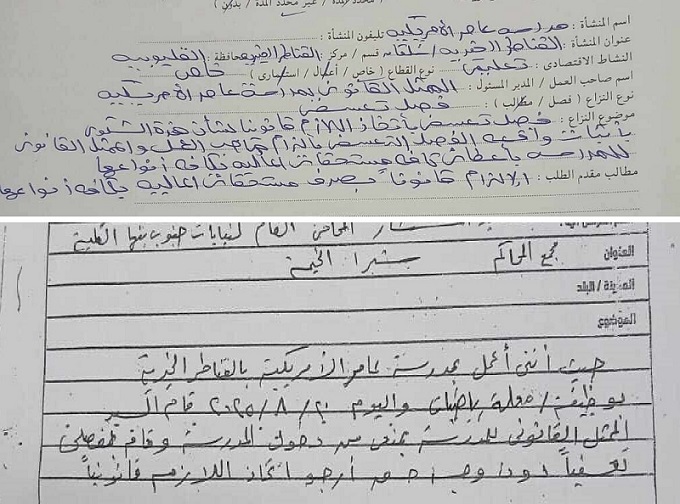 (محددة المدة / غير محددة المدة / بدون)
اسم المنشأة : مدرسه عامر الأمريكيه تليفون المنشأة :
عنوان المنشأة : القناطر الخيريه / شلقان قسم / مركز : القناطر الخيريه محافظة : القليوبيه
النشاط الاقتصادى : تعليمى نوع القطاع ( خاص / أعمال / استثمارى ) خاص
اسم صاحب العمل / المدير المسئول : الممثل القانونى بمدرسة عامر الأمريكيه
نوع النزاع ( فصل / مطالب ) : فصل تعسفى
موضوع النزاع : فصل تعسفى بأتخاذ اللازم قانونا بشأن هذة الشكوى
بأثبات واقعه الفصل التعسفى بالزام صاحب العمل والممثل القانونى
للمدرسه بأعطائى كافه مستحقاتى الماليه بكافه أنواعها
مطالب مقدم الطلب : الالزام قانونا بصرف مستحقاتى الماليه بكافه أنواعها
المحامى العام لنيابات جنوب بنها الكلية
العنوان مجمع المحاكم بشبرا الخيمة
المدينة / البلد
الموضوع
حيث أننى أعمل بمدرسة عامر الأمريكية بالقناطر الخيرية
بوظيفة / معلمة رياضيات واليوم ٢٠ / ٨ / ٢٠٢٥ قام السيد
الممثل القانونى للمدرسة بمنعى من دخول المدرسة وقام بفصلى
تعسفياً دون وجه حق أرجو اتخاذ اللازم قانونياً